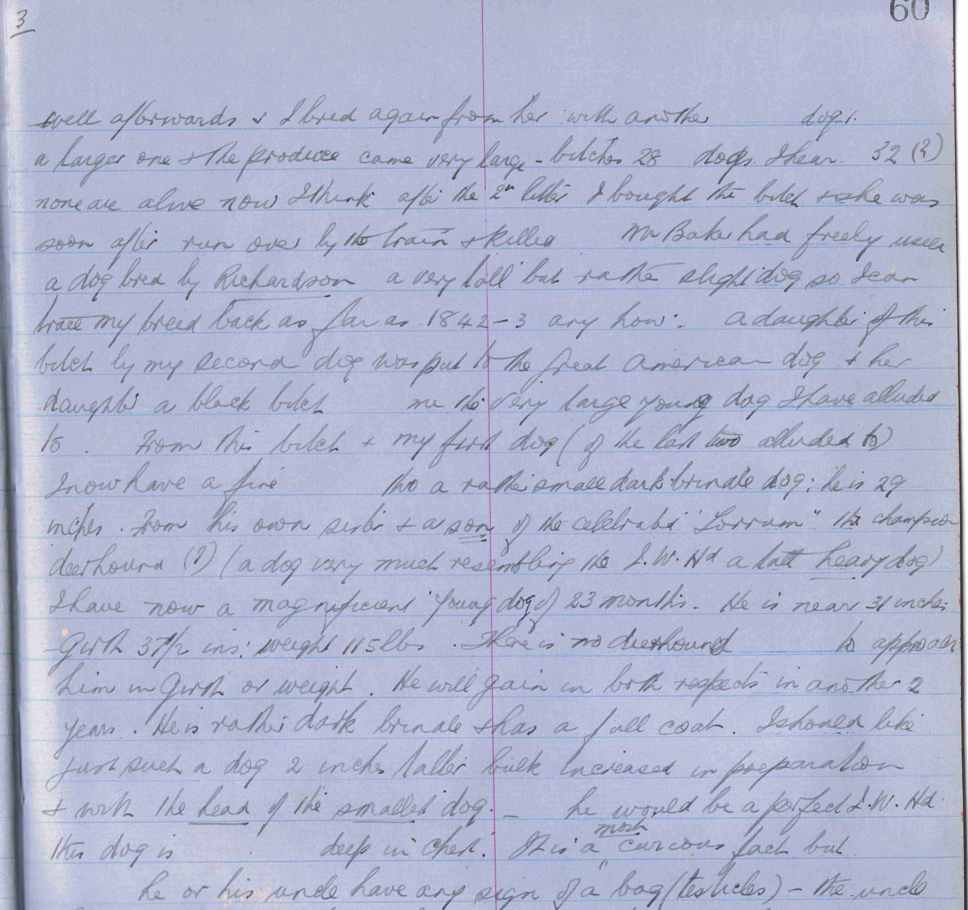 3
60
well afterwards & I bred again from her with another dog:
a larger one & the produce came very large - bitches 28 dogs I hear 32 (?)
none are alive now I think after the 2nd litter I bought the bitch & she was
soon after run over by the train & killed Mr Baker had freely used
a dog bred by Richardson a very tall but rather slight dog so I can
trace my breed back as far as 1842-3 any how. A daughter of this
bitch by my second dog was put to the great American dog & her
daughter a black bitch me the very large young dog I have alluded
to. From this bitch & my first dog (of the last two alluded to)
I now have a fine tho a rather small dark brindle dog; he is 29
inches. From his own sister & a son of the celebrated "Lorrum" the champion
deerhound (?) (a dog very much resembling the I.W.Hd a tall heavy dog)
I have now a magnificent young dog of 23 months. He is near 31 inches
Girth 37 1/2 ins: weight 115 lbs. There is no deerhound to approach
him in Girth or weight. He will gain in both respects in another 2
years. He is rather dark brindle & has a full coat. I should like
just such a dog 2 inches taller bulk increased in preparation
& with the head of the smallest dog. - he would be a perfect I.W.Hd.
this dog is deep in chest. It is a most curious fact but
he or his uncle have any sign of a bag (testicles) - the uncle